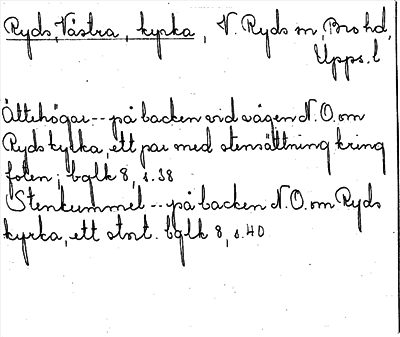 Ryds, Västra, kyrka, V. Ryds sn, Bro hd,
Upps. l
Ättehögar -- på backen vid vägen N.O. om
Ryds kyrka, ett par med stensättning kring
foten; bglk 8, s. 38
Stenkummel -- på backen N.O. om Ryds
kyrka, ett stort. bglk 8, s. 40